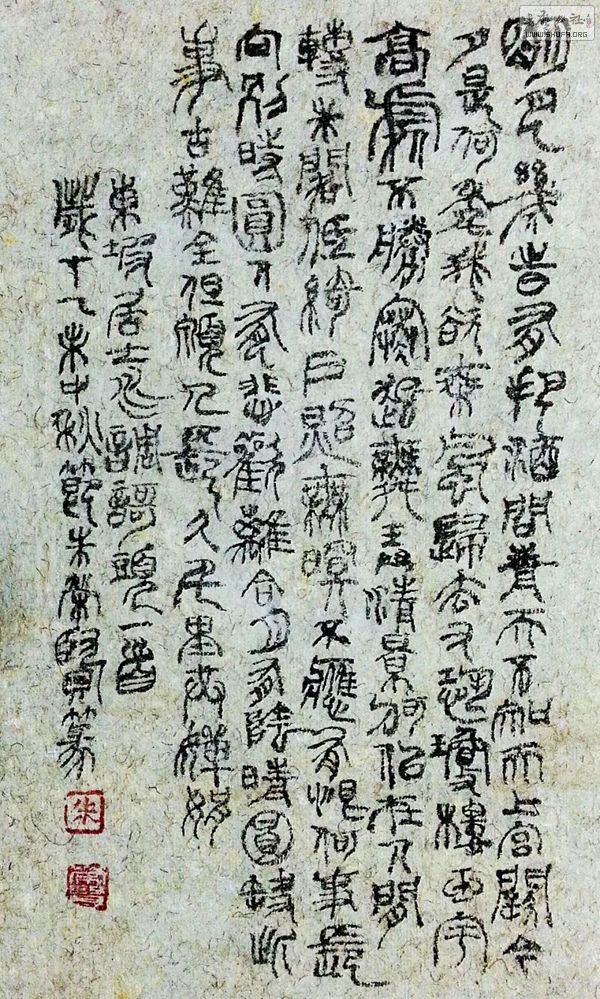 明月幾時有把酒問青天不知天上宮闕今
夕是何年我欲乘風歸去又恐瓊樓玉宇
高處不勝寒起舞弄清影何似在人間
轉朱閣低綺戶照無眠不應有恨何事長
向別時圓人有悲歡離合月有陰晴圓缺此
事古難全但願人長久千里共嬋娟
東坡居士水調歌頭一首
歲在乙未中秋節朱榮篆
朱
WWW.SHUFA.ORG